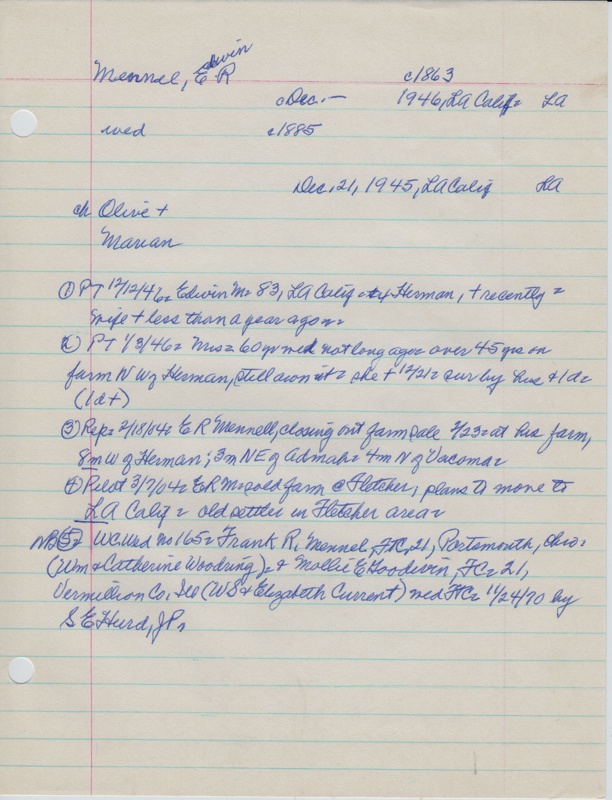 Edwin
Mennel, E R c1863
cDec.— 1946, LA Calif= LA
wed c1885
Dec, 21, 1945, LA Calif LA
ch Olive +
Marian
① PT 12/12/46= Edwin M= 83, LA Calif = Herman, + recently =
wife + less than a year ago==
② PT 1/3/46= Mrs= 60 yr wed not long ago= over 45 yrs on
farm NW of Herman, still own it= she + 12/21= sur by hus & 1d=
(1d+)
③ Rep= 2/18/04= E R Mennell, closing out farm sale 2/23= at his farm,
8m W of Herman; 3m NE of Admah= 4m N of Vacoma=
④ Pilot 3/7/04= ER M= sold farm @ Fletcher, plans to move to
LA Calif= old settler in Fletcher area=
NB ⑤= WC Wed no 165= Frank R. Mennel, FC, 21, Portsmouth, Ohio=
(Wm & Catherine Woodring)= & Mollie E Goodwin, FC= 21,
Vermillion Co. Ill (WS & Elizabeth Current) wed FC= 11/24/70 by
S E Hurd, JP,